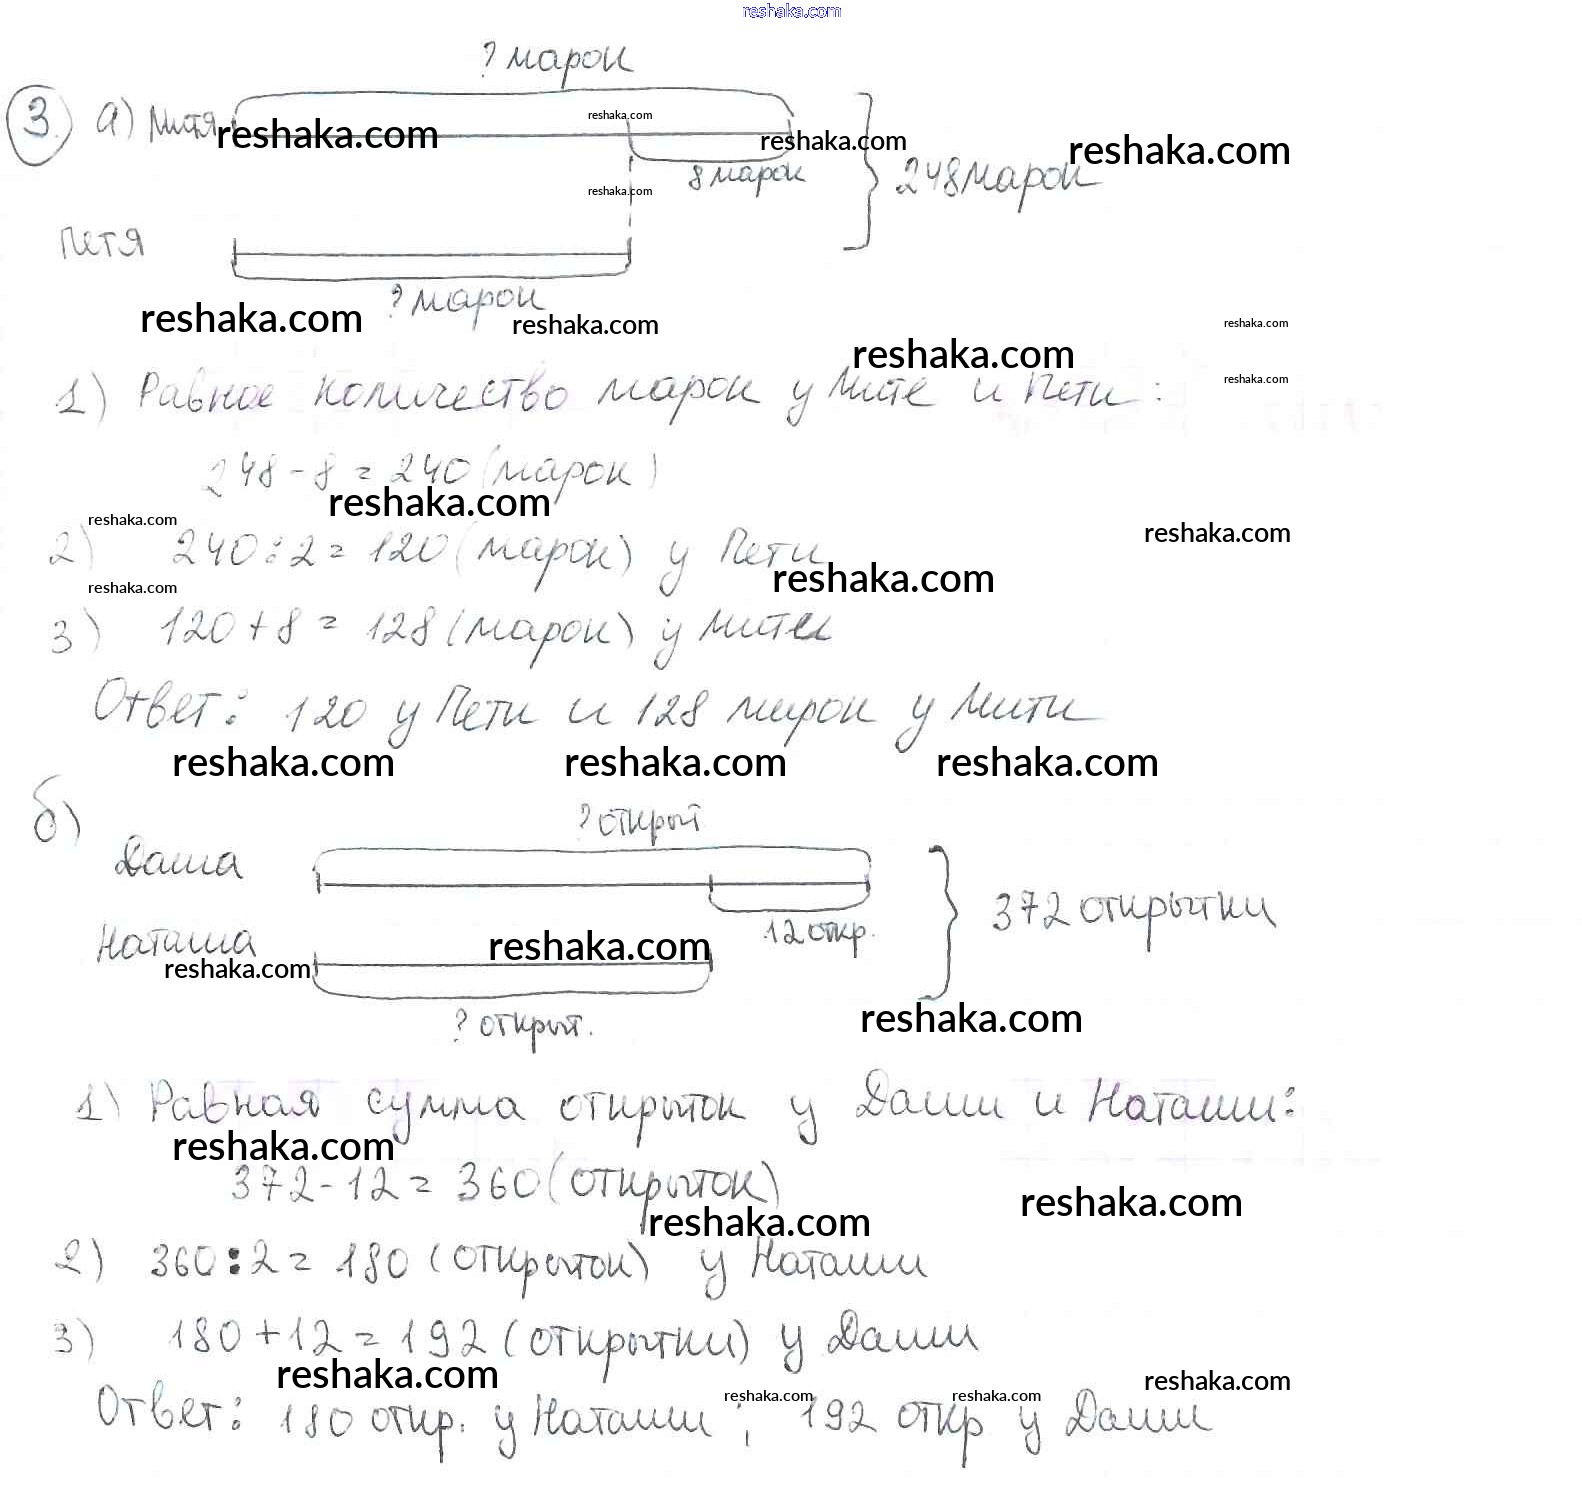 reshaka.com
? марок
3. а) Митя reshaka.com reshaka.com reshaka.com reshaka.com
8 марок 248 марок
reshaka.com
Петя
? марок
reshaka.com reshaka.com reshaka.com
reshaka.com
1) Равное количество марок у Мите и Пети: reshaka.com
248 - 8 = 240 (марок)
reshaka.com
reshaka.com reshaka.com
2) 240 : 2 = 120 (марок) у Пети
reshaka.com reshaka.com
3) 120 + 8 = 128 (марок) у Мити
Ответ: 120 у Пети и 128 марок у Мити
reshaka.com reshaka.com reshaka.com
б)
? открыт
Даша
12 откр. 372 открытки
Наташа reshaka.com
reshaka.com
? открыт. reshaka.com
1) Равная сумма открыток у Даши и Наташи:
reshaka.com
372 - 12 = 360 (открыток) reshaka.com
reshaka.com
2) 360 : 2 = 180 (открыток) у Наташи
3) 180 + 12 = 192 (открытки) у Даши
reshaka.com reshaka.com reshaka.com reshaka.com
Ответ: 180 откр. у Наташи ; 192 откр у Даши